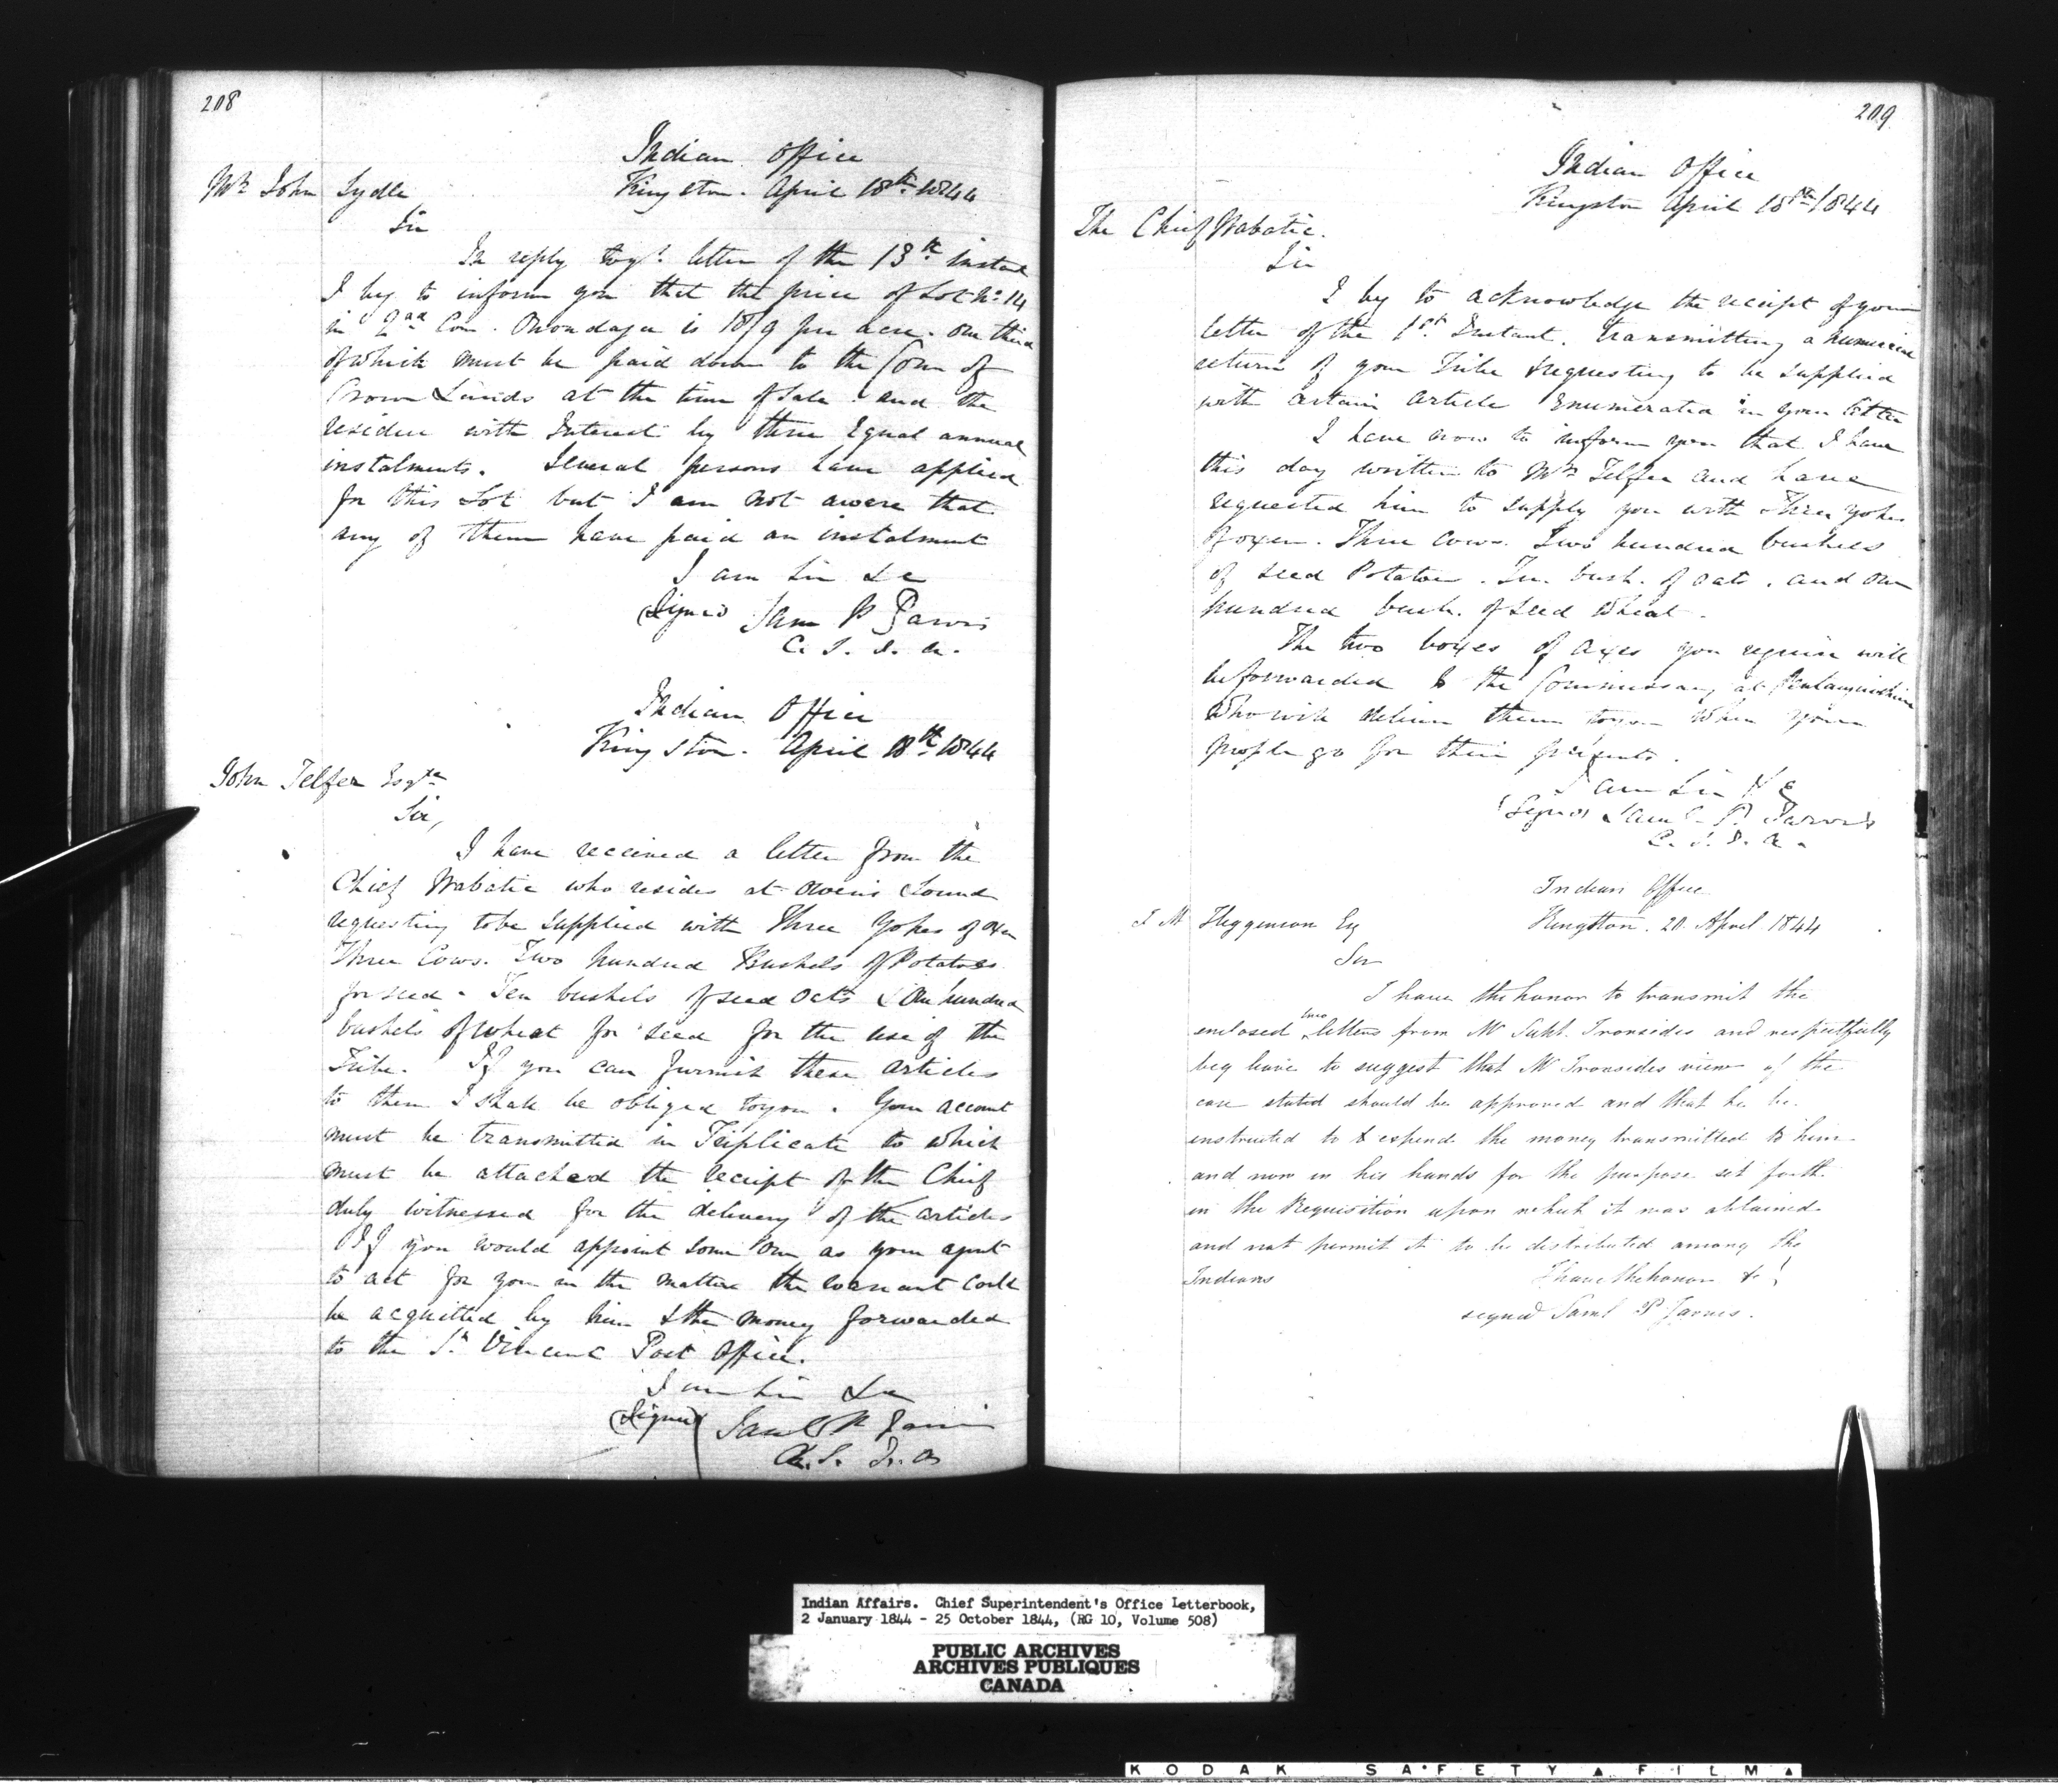 208
Indian Office
Kingston. April 18th 1844
Mr John Lydle
Sir
In reply to yr. letter of the 13th Instant
I beg to inform you that the price of Lot No 14
in 2nd Con. Onondaga is 18/9 per acre. One third
of which must be paid down to the Com of
Crown Lands at the time of sale. and the
residue with Interest by three Equal annual
instalments. Several persons have applied
for this Lot but I am not aware that
any of them have paid an instalment
I am Sir &c
(Signed Sam P Jarvis
C. S. I. A.
Indian Office
Kingston. April 18th 1844
John Telfer Esqre
Sir,
I have received a letter from the
Chief Wabatic who resides at Owens Sound
requesting to be supplied with Three Yokes of Oxen
Three Cows. Two hundred Bushels of Potatoes
for seed - Ten bushels of seed oats & One hundred
bushels of wheat for seed for the use of the
Tribe. If you can furnish these articles
to them I shall be obliged to you. Your account
must be transmitted in Triplicate to which
must be attached the receipt of the Chief
duly witnessed for the delivery of the articles
If you would appoint some one as your agent
to act for you in the matter the warrant could
be acquitted by him & the money forwarded
to the St. Vincent Post Office.
I am Sir &c
(Signed) Saml P Jarvis
C. S. I. A
209
Indian Office
Kingston April 18th 1844
The Chief Wabatic.
Sir
I beg to acknowledge the receipt of your
letter of the 1st Instant. transmitting a numerical
return of your Tribe & requesting to be supplied
with certain article enumerated in your letter
I have now to inform you that I have
this day written to Mr Telfer and have
requested him to supply you with Three yokes
of oxen. Three Cows. Two hundred bushels
of seed Potatoes. Ten bush. of oats. and one
hundred bush. of seed Wheat.
The two boxes of axes you require will
be forwarded to the Commissary at Penetanguishine
who will deliver them to you when your
people go for their presents.
I am Sir &c
(Signed Saml P. Jarvis
C. S. I. A.
Indian Office
Kingston. 20 April 1844
J M Higginson Esq
Sir
I have the honor to transmit the
enclosed two letters from Mr Supt. Ironsides and respectfully
beg leave to suggest that Mr Ironsides view of the
case stated should be approved and that he be
instructed to expend the money transmitted to him
and now in his hands for the purpose set forth
in the Requisition upon which it was obtained
and not permit it to be distributed among the
Indians I have the honor &c
signed Saml P Jarvis.
Indian Affairs. Chief Superintendent's Office Letterbook,
2 January 1844 - 25 October 1844, (RG 10, Volume 508)
PUBLIC ARCHIVES
ARCHIVES PUBLIQUES
CANADA
KODAK SAFETY FILM